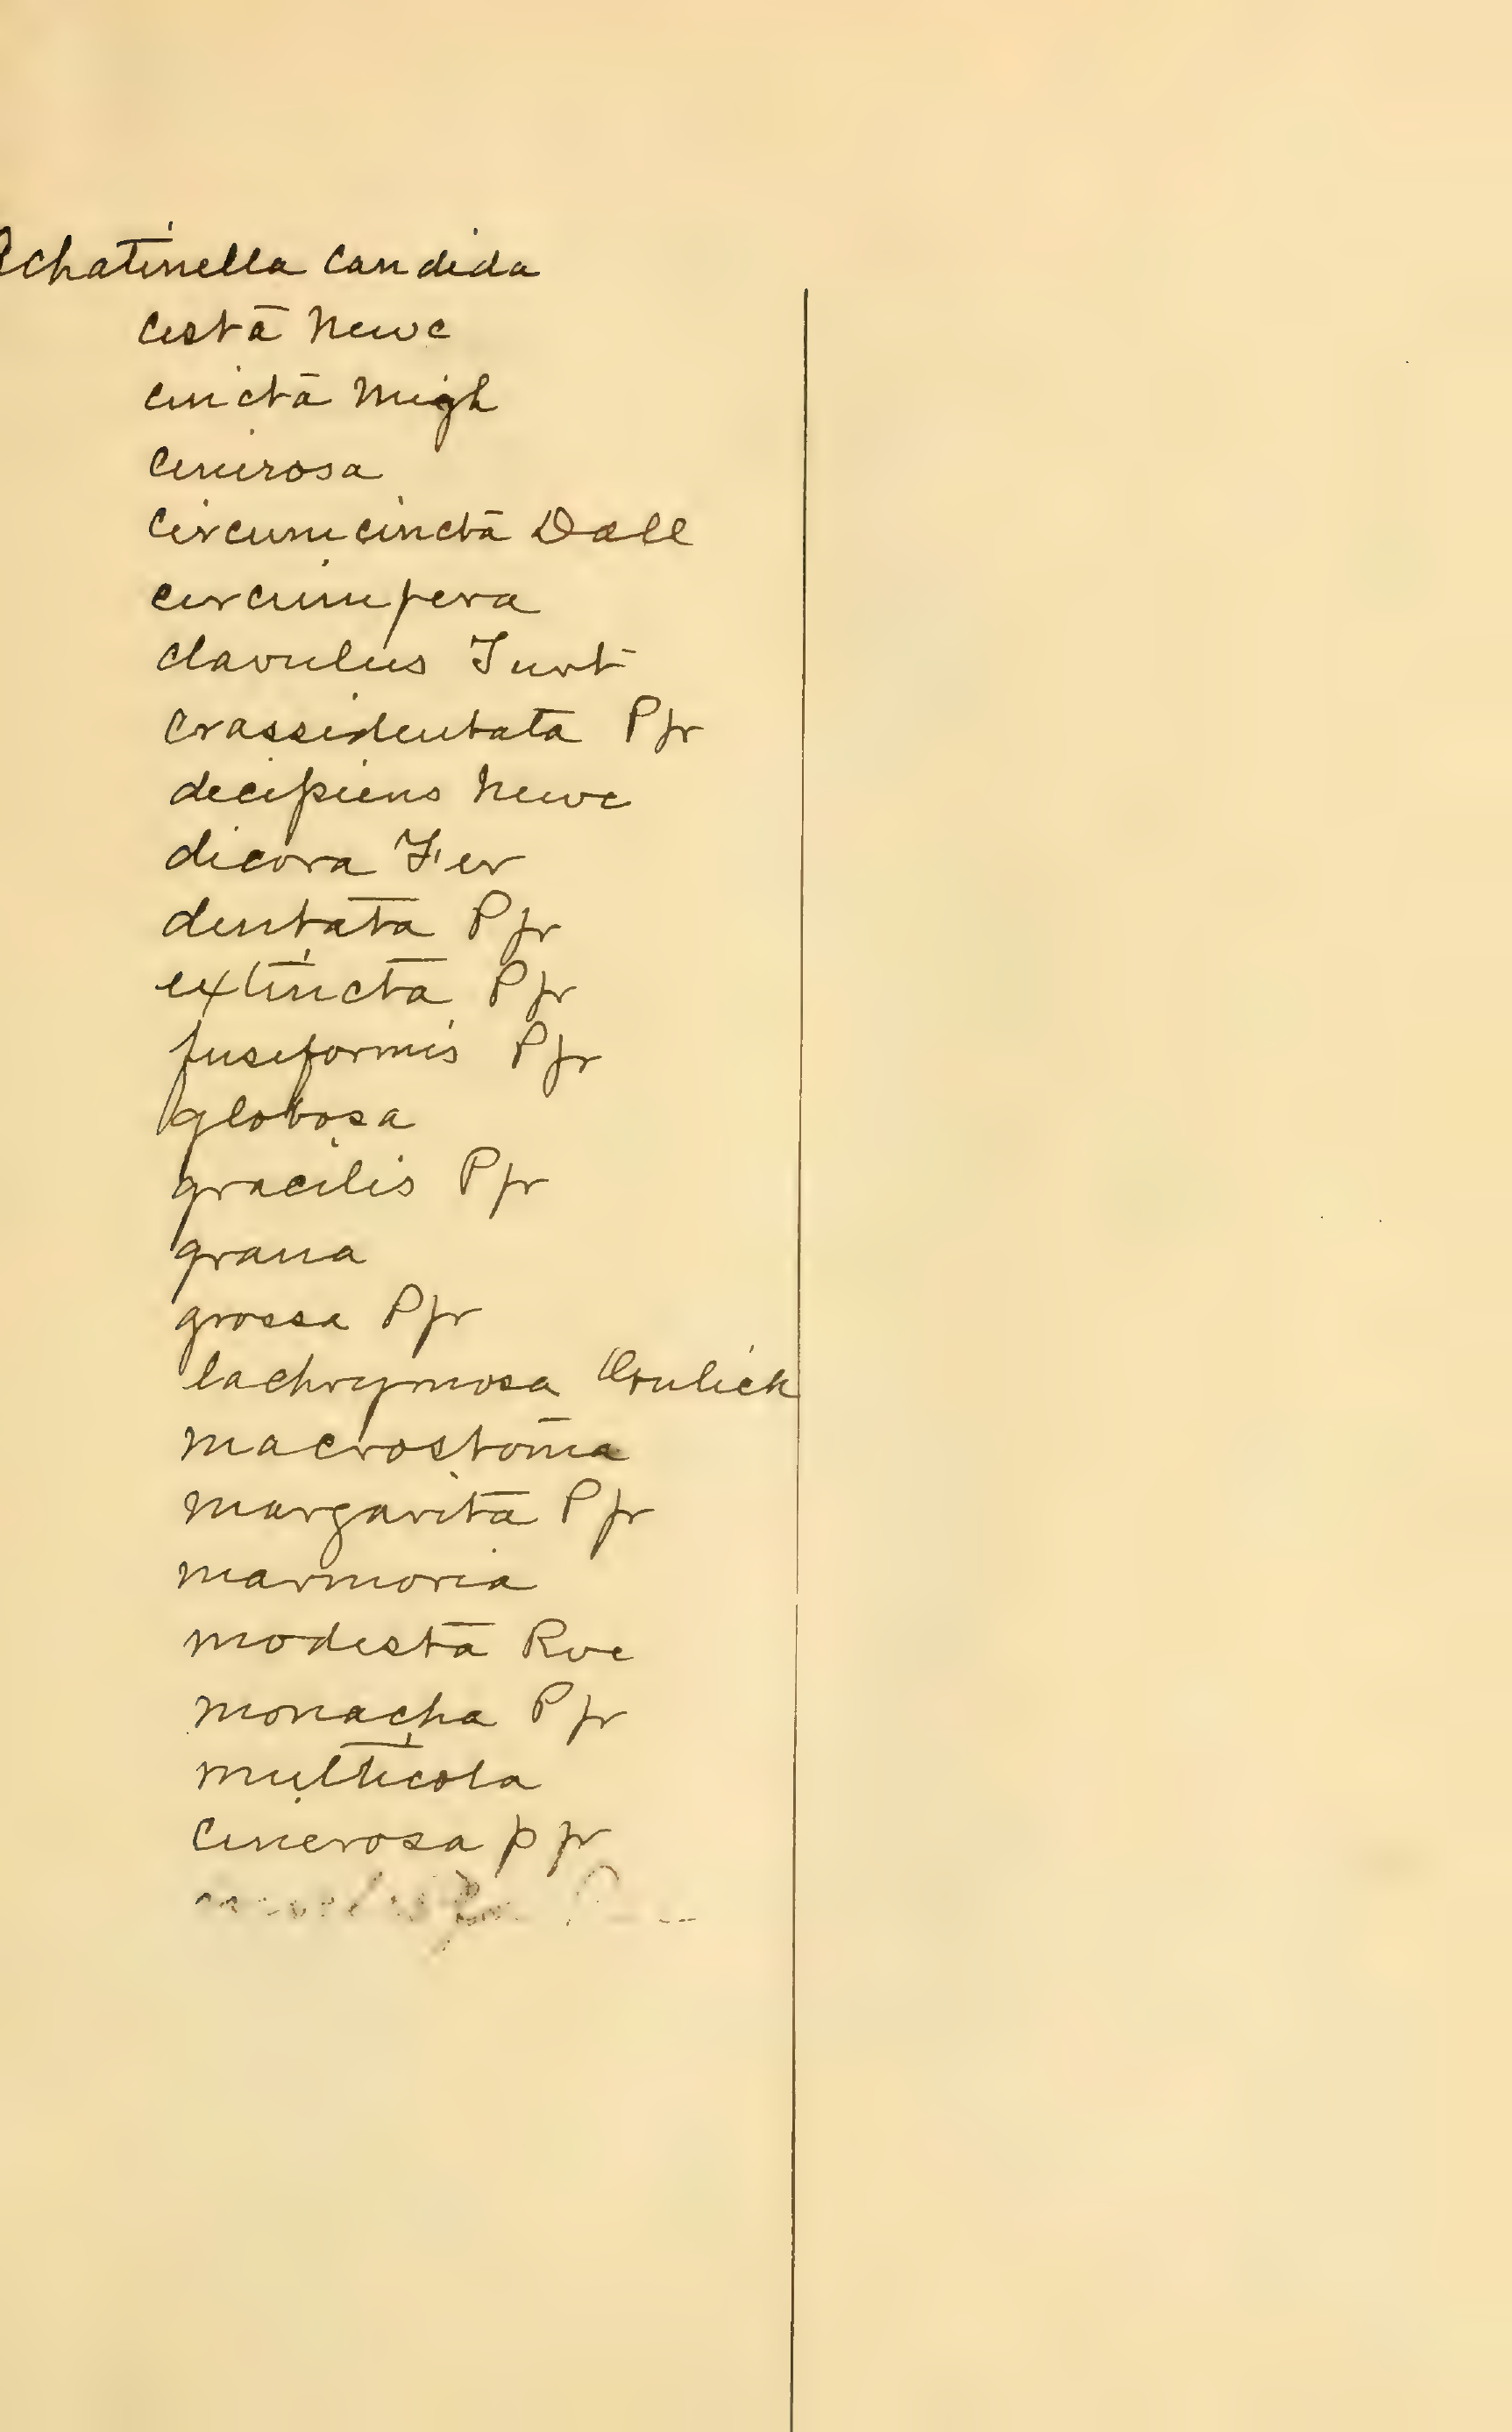 Achatinella candida
cesta Newc
cincta Migh
cinirosa
circumcincta Dall
circumfera
clavulus Turt
crassidentata Pfr
decipiens Newc
dicora Fer
dentata Pfr
extincta Pfr
fusiformis Pfr
globosa
gracilis Pfr
grana
grossa Pfr
lachrymosa Gulick
macrostoma
margarita Pfr
marmoria
modesta Rve
monacha Pfr
multicola
cinerosa pfr